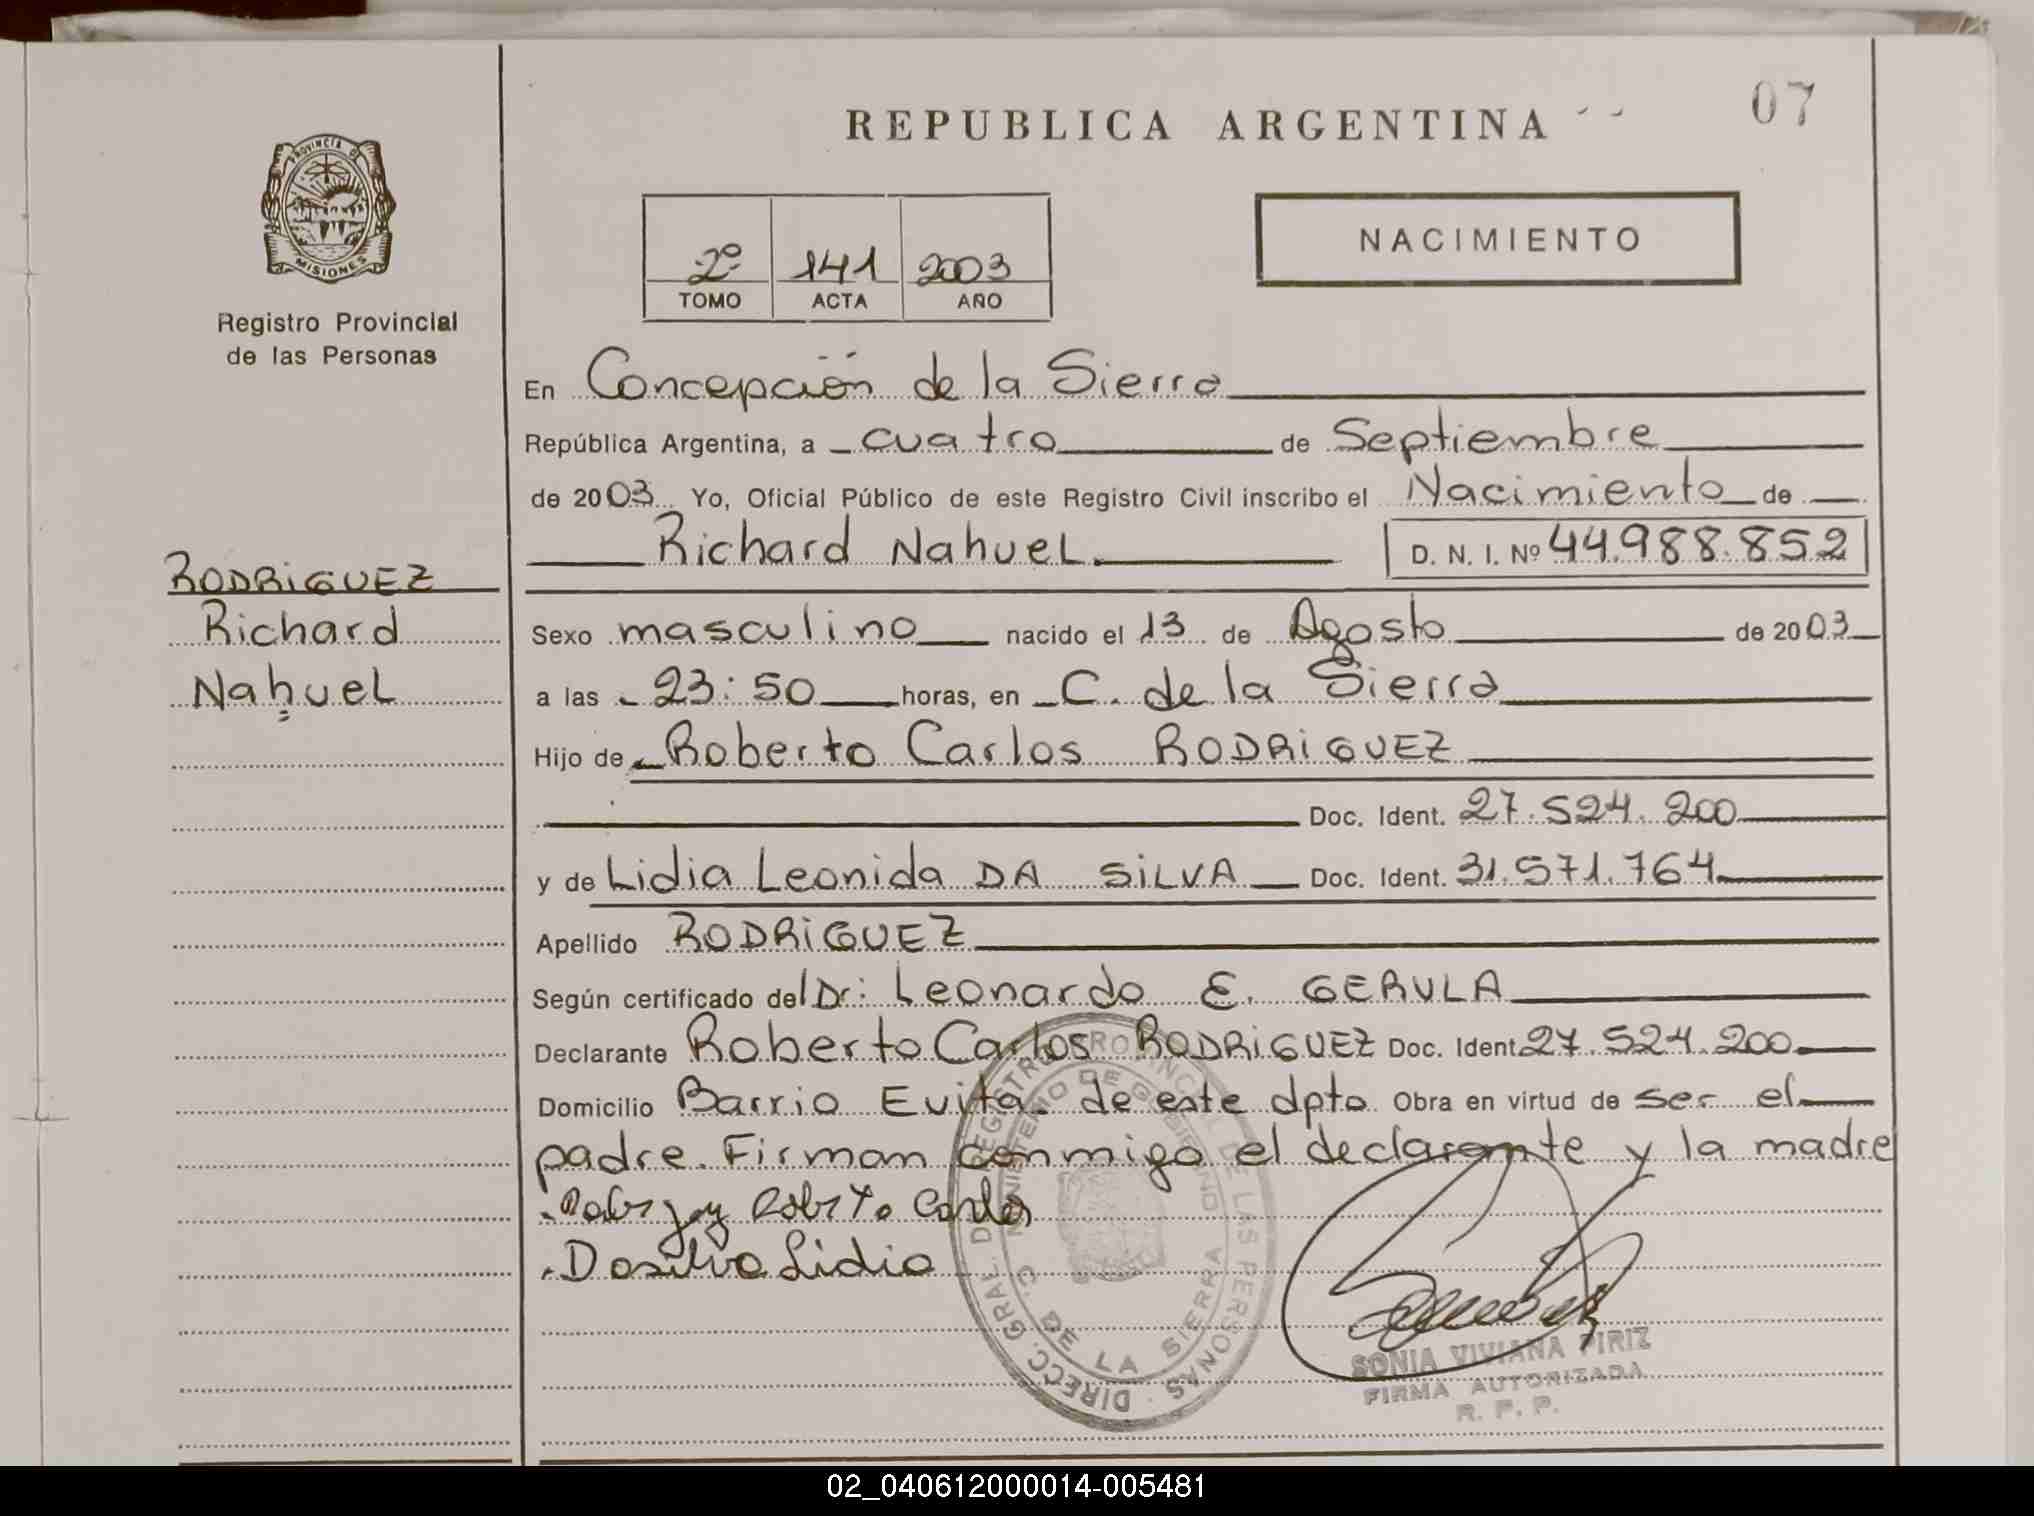 REPUBLICA ARGENTINA
07
PROVINCIA DE
MISIONES
Registro Provincial
de las Personas
2º 141 2003
TOMO ACTA AÑO
NACIMIENTO
En Concepción de la Sierra
República Argentina, a cuatro de Septiembre
de 2003 Yo, Oficial Público de este Registro Civil inscribo el Nacimiento de
Richard Nahuel. D. N. I. Nº 44.988.852
RODRiGUEZ
Richard
Nahuel
Sexo masculino nacido el 13 de Agosto de 2003
a las 23:50 horas, en C. de la Sierra
Hijo de Roberto Carlos RODRiGUEZ
Doc. Ident. 27.524.200
y de Lidia Leonida DA SiLVA Doc. Ident. 31.571.764
Apellido RODRiGUEZ
Según certificado del Dr: Leonardo E. GERULA
Declarante Roberto Carlos RODRiGUEZ Doc. Ident. 27.524.200
Domicilio Barrio Evita. de este dpto Obra en virtud de ser el
padre. Firman conmigo el declarante y la madre
Roberto Carlos
Dasilva Lidia
DIRECC. GRAL. DE REGISTRO PROVINCIAL DE LAS PERSONAS
MINISTERIO DE GOBIERNO
C. DE LA SIERRA
SONIA VIVIANA PIRIZ
FIRMA AUTORIZADA
R. P. P.
02_040612000014-005481